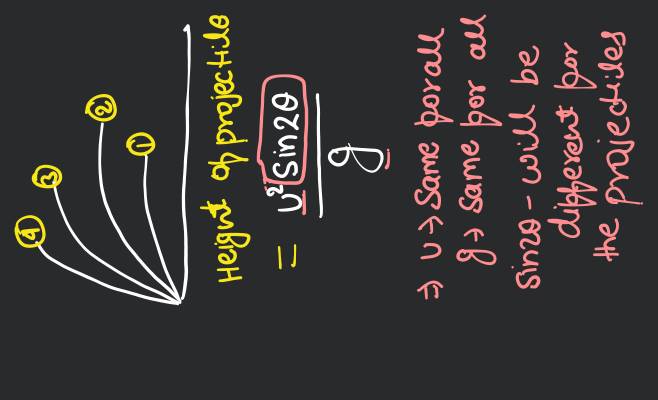 ④
③
②
①
Height of projectile
= u² sin2θ
g
⇒ u → Same for all
g → same for all
sin2θ - will be
different for
the projectiles